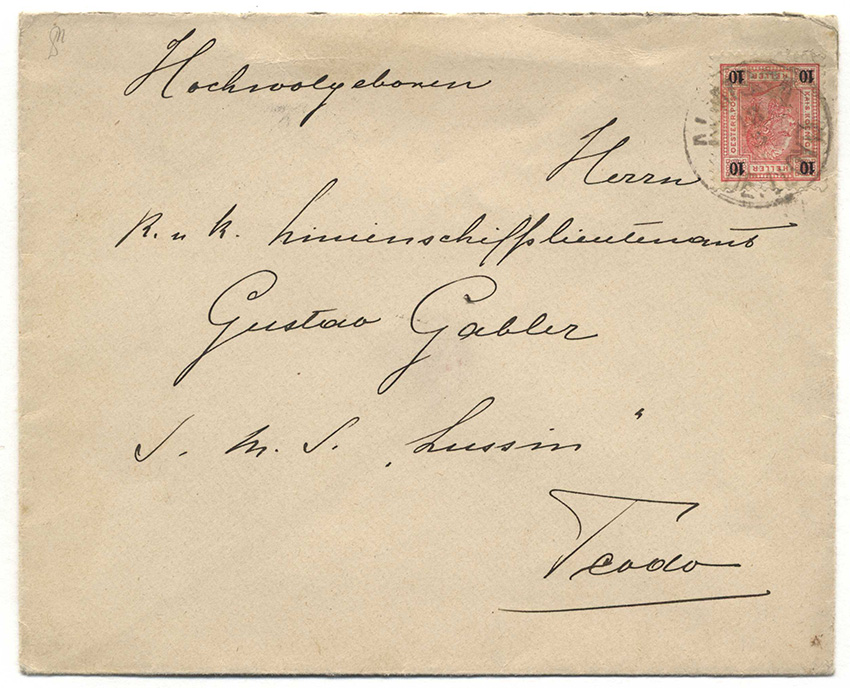 Hochwolgeboren
Herrn
K. u K. Linienschiffslieutenant
Gustav Gabler
S. M. S. „Lussin“
Teodo
10 10
10 10
HELLER
HELLER
OESTERR. POST